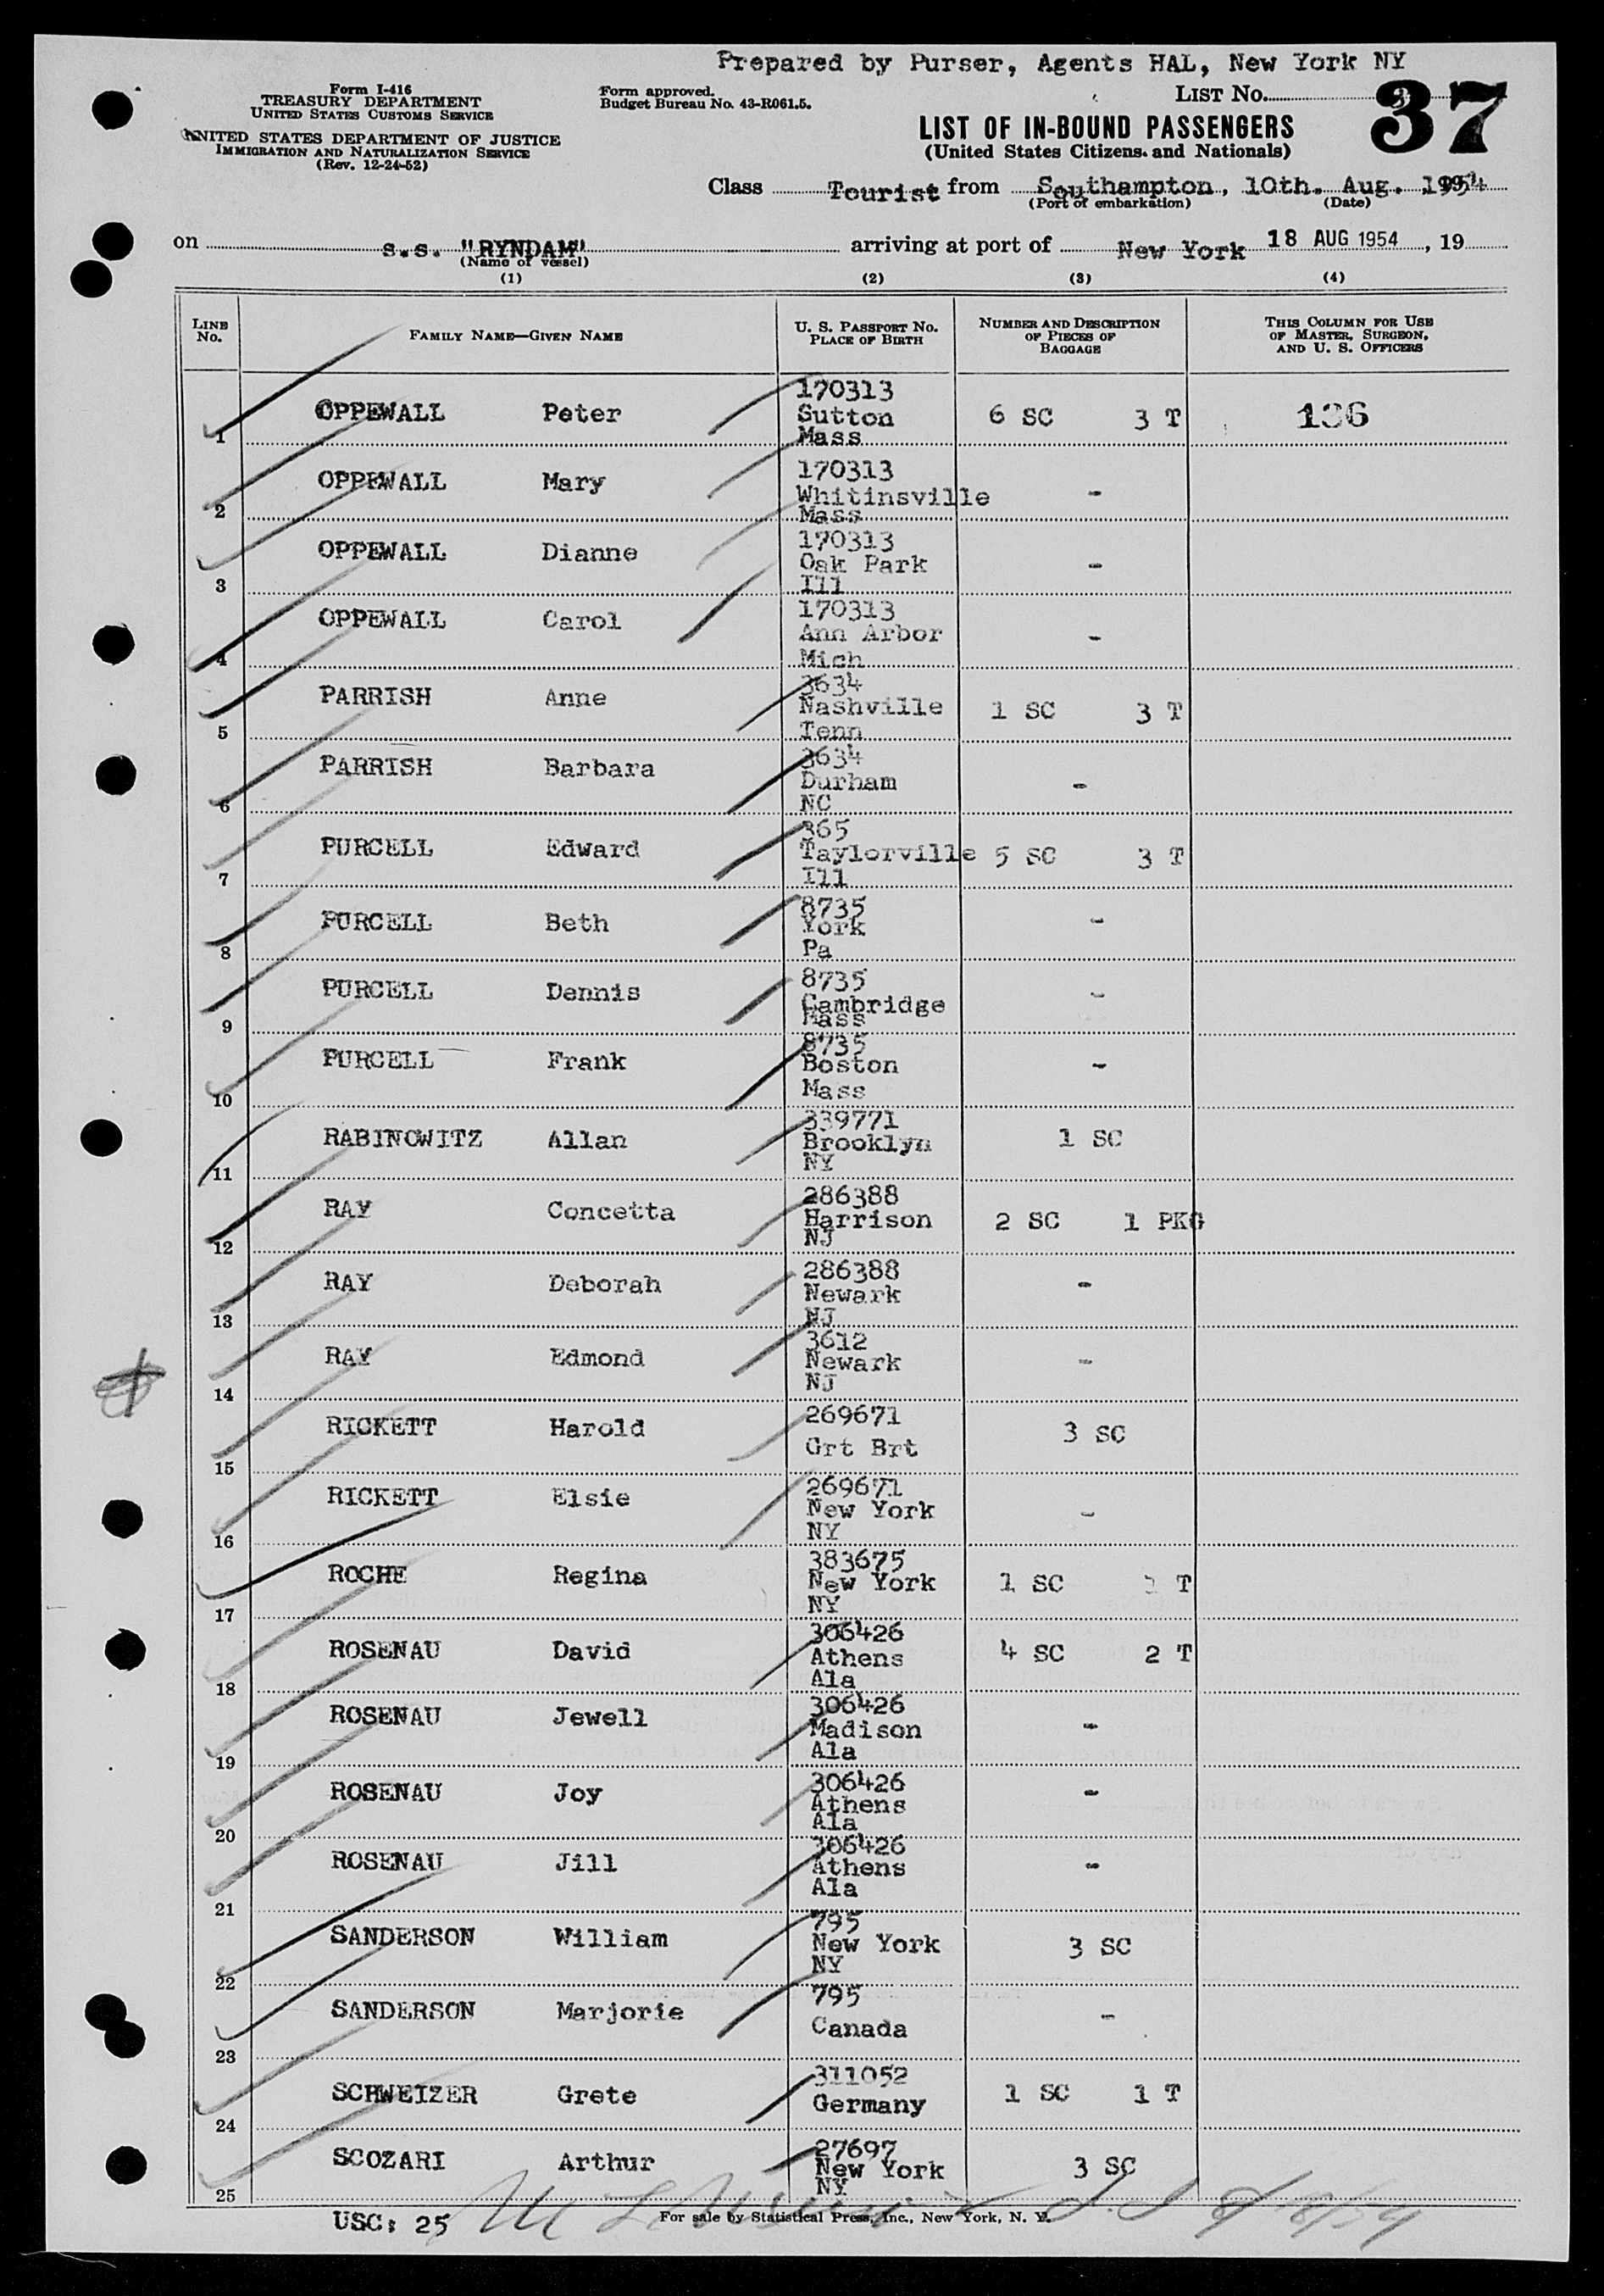 Prepared by Purser, Agents HAL, New York NY
Form I-416
TREASURY DEPARTMENT
UNITED STATES CUSTOMS SERVICE
UNITED STATES DEPARTMENT OF JUSTICE
IMMIGRATION AND NATURALIZATION SERVICE
(Rev. 12-24-52)
Form approved.
Budget Bureau No. 43-R061.5.
LIST NO. 37
LIST OF IN-BOUND PASSENGERS
(United States Citizens and Nationals)
Class Tourist from Southampton, 10th. Aug. 1954
(Port of embarkation) (Date)
on s.s. "RYNDAM" arriving at port of New York 18 AUG 1954, 19
(Name of vessel)
(1) (2) (3) (4)
LINE NO. FAMILY NAME—GIVEN NAME U. S. PASSPORT NO. PLACE OF BIRTH NUMBER AND DESCRIPTION OF PIECES OF BAGGAGE THIS COLUMN FOR USE OF MASTER, SURGEON, AND U. S. OFFICERS
1 OPPEWALL Peter 170313 Sutton Mass 6 SC 3 T 136
2 OPPEWALL Mary 170313 Whitinsville Mass -
3 OPPEWALL Dianne 170313 Oak Park Ill -
4 OPPEWALL Carol 170313 Ann Arbor Mich -
5 PARRISH Anne 3634 Nashville Tenn 1 SC 3 T
6 PARRISH Barbara 3634 Durham NC -
7 PURCELL Edward 365 Taylorville Ill 5 SC 3 T
8 PURCELL Beth 8735 York Pa -
9 PURCELL Dennis 8735 Cambridge Mass -
10 PURCELL Frank 8735 Boston Mass -
11 RABINOWITZ Allan 339771 Brooklyn NY 1 SC
12 RAY Concetta 286388 Harrison NJ 2 SC 1 PKG
13 RAY Deborah 286388 Newark NJ -
14 RAY Edmond 3612 Newark NJ -
15 RICKETT Harold 269671 Grt Brt 3 SC
16 RICKETT Elsie 269671 New York NY -
17 ROCHE Regina 383675 New York NY 1 SC T
18 ROSENAU David 306426 Athens Ala 4 SC 2 T
19 ROSENAU Jewell 306426 Madison Ala -
20 ROSENAU Joy 306426 Athens Ala -
21 ROSENAU Jill 306426 Athens Ala -
22 SANDERSON William 795 New York NY 3 SC
23 SANDERSON Marjorie 795 Canada -
24 SCHWEIZER Grete 311052 Germany 1 SC 1 T
25 SCOZARI Arthur 27697 New York NY 3 SC
USC: 25
For sale by Statistical Press, Inc., New York, N. Y.